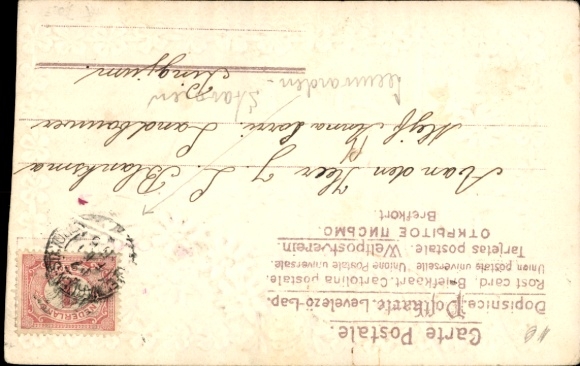 Carte Postale.
Dopisnice. Postkarte. Levelező-Lap.
Post card. Briefkaart. Cartolina postale.
Union postale universelle. Unione Postale universale.
Tarjetas postale. Weltpostverein.
ОТКРЫТОЕ ПИСЬМО.
Brefkort.
NEDERLAND
Aan den Heer J. L. Blanksma
Alhijs Annalorri. Landbouwer
Stavoren
Leeuwarden-
Pingjum